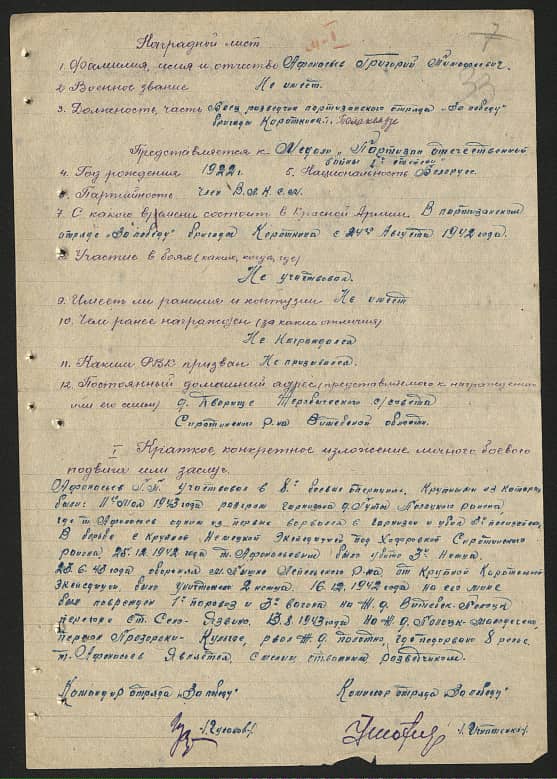 7
Наградной лист
1. Фамилия, имя и отчество Афонасьев Григорий Тимофеевич.
2. Военное звание Не имеет.
3. Должность, часть Боец разведчик партизанского отряда „За победу"
бригады Короткина.
Представляется к Медали „Партизан отечественной
войны 1ой степени"
4. Год рождения 1922 г. 5. Национальность Белорус.
6. Партийность Член В.Л.К.С.М.
7. С какого времени состоит в Красной Армии В партизанском
отряде „За победу" бригады Короткина с 24го Августа 1942 года.
8. Участие в боях (каких, когда, где)
Не участвовал.
9. Имеет ли ранения и контузии Не имеет
10. Чем ранее награжден (за какие отличия)
Не Награждался
11. Каким РВК призван Не призывался.
12. Постоянный домашний адрес (представляемого к награждению
или его семьи) д. с/совета
Сиротинского р-на Витебской области.
I Краткое, конкретное изложение личного боевого
подвига или заслуг.
Афонасьев Г.Т. участвовал в 8и боевых операциях. Крупными из которых
были: 11го Мая 1943 года разгром гарнизона д. Гуты Полоцкого района,
где т. Афонасьев одним из первых ворвался в гарнизон и убил
В борьбе с крупной Немецкой Экспедицией под Сиротинского
района 25.12.1942 года т. Афонасьевым было убито 3и Немца.
23.6.43 года обороняя м. Пышно Лепельского р-на от крупной Карательной
экспедиции было уничтожено 2 немца. 16.12.1942 года на его мине
был поврежден 1н паровоз и 3и вагона на Ж.Д. Витебск-Полоцк
перегоне ст. Село-Язвино. 13.8.1943 года на Ж.Д. Полоцк-Молодечно,
перегон Прозороки- рвал Ж.Д. полотно, где подорвано 8 рельс.
т. Афонасьев Является Смелым отважным разведчиком.
Командир отряда „За победу" Комиссар отряда „За победу"
/Гудаков/ /Игнатенко/